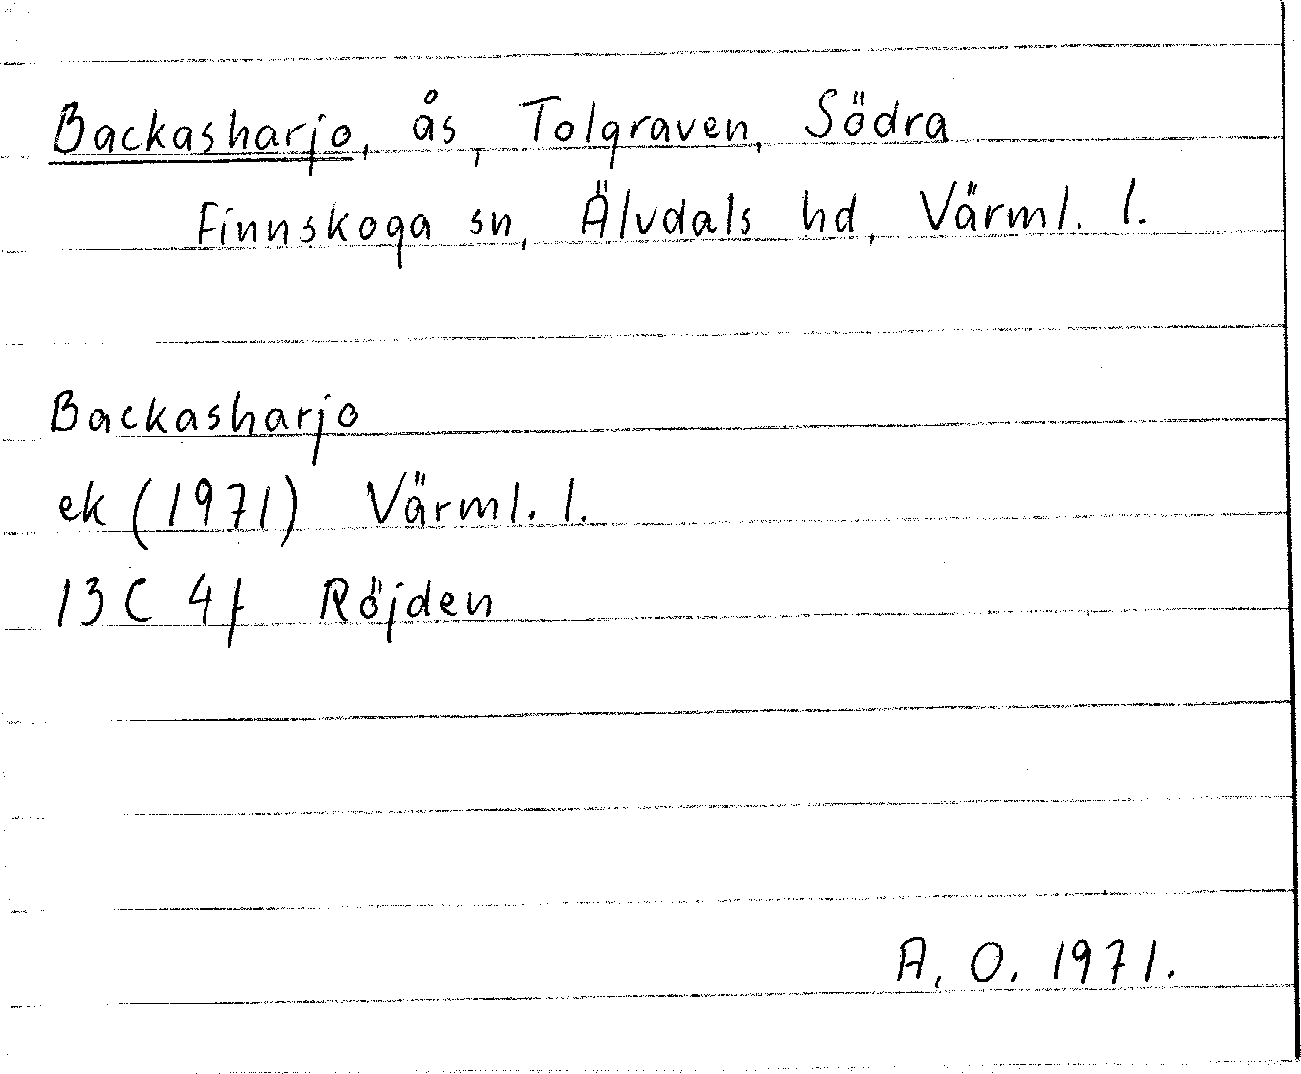 Backasharjo, ås, Tolgraven, Södra
Finnskoga sn, Älvdals hd, Värml. l.
Backasharjo
ek (1971) Värml. l.
13 C 4f Röjden
A. O. 1971.